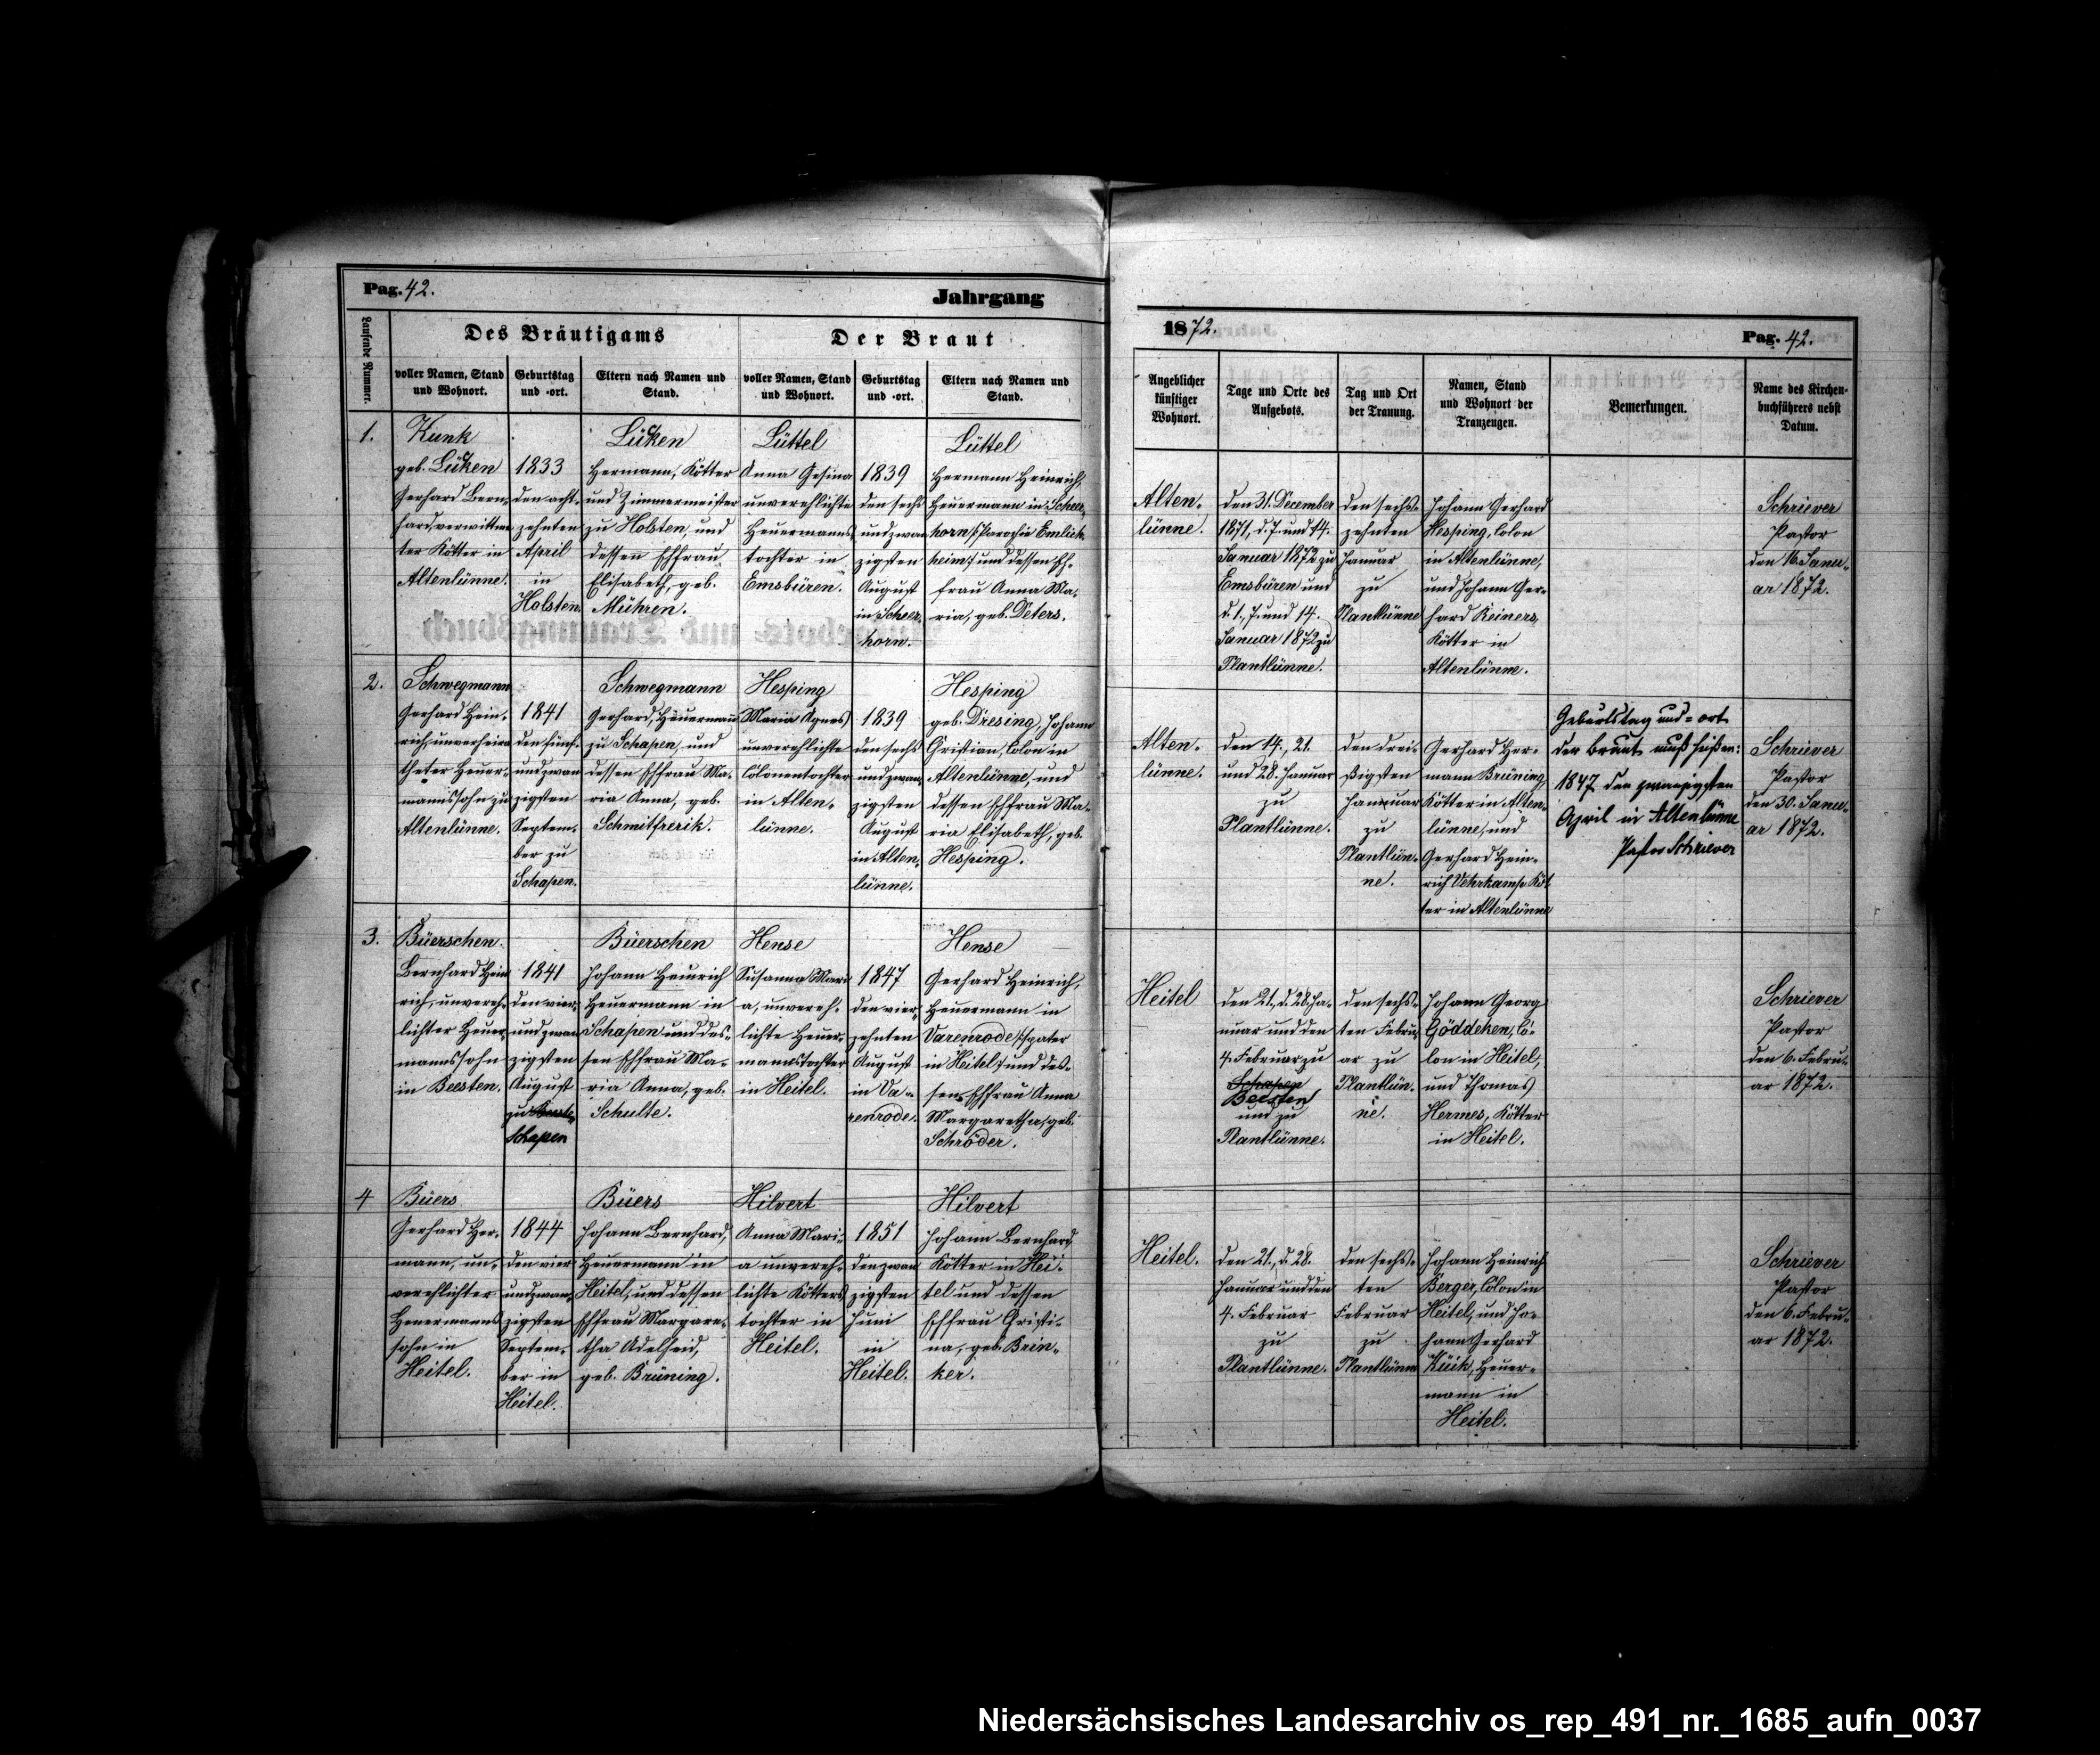 Pag. 42.
Jahrgang
1872.
Pag. 42.
Laufende Nummer.
Des Bräutigams
Der Braut
voller Namen, Stand
und Wohnort.
Geburtstag
und -ort.
Eltern nach Namen und
Stand.
voller Namen, Stand
und Wohnort.
Geburtstag
und -ort.
Eltern nach Namen und
Stand.
Angeblicher
künftiger
Wohnort.
Tage und Orte des
Aufgebots.
Tag und Ort
der Trauung.
Namen, Stand
und Wohnort der
Trauzeugen.
Bemerkungen.
Name des Kirchen-
buchführers nebst
Datum.
1.
Kunk
geb. Lüken
Gerhard Bern-
hard, verwittwe-
ter Kötter in
Altenlünne.
1833
den acht-
zehnten
April
in
Holsten.
Lüken
Hermann, Kötter
und Zimmermeister
zu Holsten, und
dessen Ehefrau
Elisabeth, geb.
Mühren.
Lüttel
Anna Gesina
unverehlichte
Heuermanns-
tochter in
Emsbüren.
1839
den sechs
und zwan-
zigsten
August
in Scheer-
horn.
Lüttel
Hermann Heinrich,
Heuermann in Scheer-
horn /: Parochie Emlich-
heim :/ und dessen Eh-
frau Anna Ma-
ria, geb. Deters.
Alten-
lünne.
den 31. December
1871, d. 7. und 14.
Januar 1872 zu
Emsbüren und
d. 1., 7. und 14.
Januar 1872 zu
Plantlünne.
den sechs-
zehnten
Januar
zu
Plantlünne
Johann Gerhard
Hesping, Colon
in Altenlünne,
und Johann Ger-
hard Reiners,
Kötter in
Altenlünne.
Schriever
Pastor
den 16. Janu-
ar 1872.
2.
Schwegmann
Gerhard Hein-
rich, unverheira-
theter Heuer-
mannssohn zu
Altenlünne.
1841
den fünf-
und zwan
zigsten
Septem-
ber zu
Schapen.
Schwegmann
Gerhard, Heuermann
zu Schapen, und
dessen Ehefrau Ma-
ria Anna, geb.
Schmitfrerik.
Hesping
Maria Agnes
unverehlichte
Colonentochter
in Alten-
lünne.
1839
den sechs
und zwan-
zigsten
August
in Alten-
lünne.
Hesping
geb. Dresing, Johann
Christian, Colon in
Altenlünne, und
dessen Ehefrau Ma-
ria Elisabeth, geb.
Hesping.
Alten-
lünne.
den 14., 21.
und 28. Januar
zu
Plantlünne.
den drei-
ßigsten
Januar
zu
Plantlün-
ne.
Gerhard Her-
mann Brüning,
Kötter in Alten-
lünne, und
Gerhard Hein-
rich Vehrkamp, Köt-
ter in Altenlünne
Geburtstag und -ort
der Braut muß heißen:
1847 den zwanzigsten
April in Altenlünne
Pastor Schriever
Schriever
Pastor
den 30. Janu-
ar 1872.
3.
Büerschen
Bernhard Hein
rich, unvereh-
lichter Heuer-
mannssohn
in Beesten.
1841
den vier-
und zwan
zigsten
August
zu
Schapen
Büerschen
Johann Heinrich
Heuermann in
Schapen und des-
sen Ehefrau Ma-
ria Anna, geb.
Schulte.
Hense
Susanna Mari
a, unvereh-
lichte Heuer-
mannstochter
in Heitel.
1847
den vier-
zehnten
August
in Va-
renrode.
Hense
Gerhard Heinrich,
Heuermann in
Varenrode /: später
in Heitel :/ und des-
sen Ehefrau Anna
Margaretha, geb.
Schröder.
Heitel
den 21., d. 28. Ja-
nuar und den
4. Februar zu
Schapen
Beesten
und zu
Plantlünne.
den sechs-
ten Febru-
ar zu
Plantlün-
ne.
Johann Georg
Göddeken, Co-
lon in Heitel,
und Thomas
Hermes, Kötter
in Heitel.
Schriever
Pastor
den 6. Febru-
ar 1872.
4
Büers
Gerhard Her-
mann, un-
verehlichter
Heuermanns
sohn in
Heitel.
1844
den vier
und zwan-
zigsten
Septem-
ber in
Heitel.
Büers
Johann Bernhard,
Heuermann in
Heitel, und dessen
Ehefrau Margare-
tha Adelheid,
geb. Brüning.
Hilvert
Anna Mari-
a unvereh-
lichte Kötters
tochter in
Heitel.
1851
den zwan
zigsten
Juni
in
Heitel.
Hilvert
Johann Bernhard
Kötter in Hei-
tel und dessen
Ehefrau Christi-
na, geb. Brin-
ker.
Heitel.
den 21., d. 28.
Januar und den
4. Februar
zu
Plantlünne.
den sechs-
ten
Februar
zu
Plantlünne
Johann Heinrich
Berger, Colon in
Heitel, und Jo-
hann Gerhard
Küik, Heuer-
mann in
Heitel.
Schriever
Pastor
den 6. Febru-
ar 1872.
Niedersächsisches Landesarchiv os_rep_491_nr._1685_aufn_0037